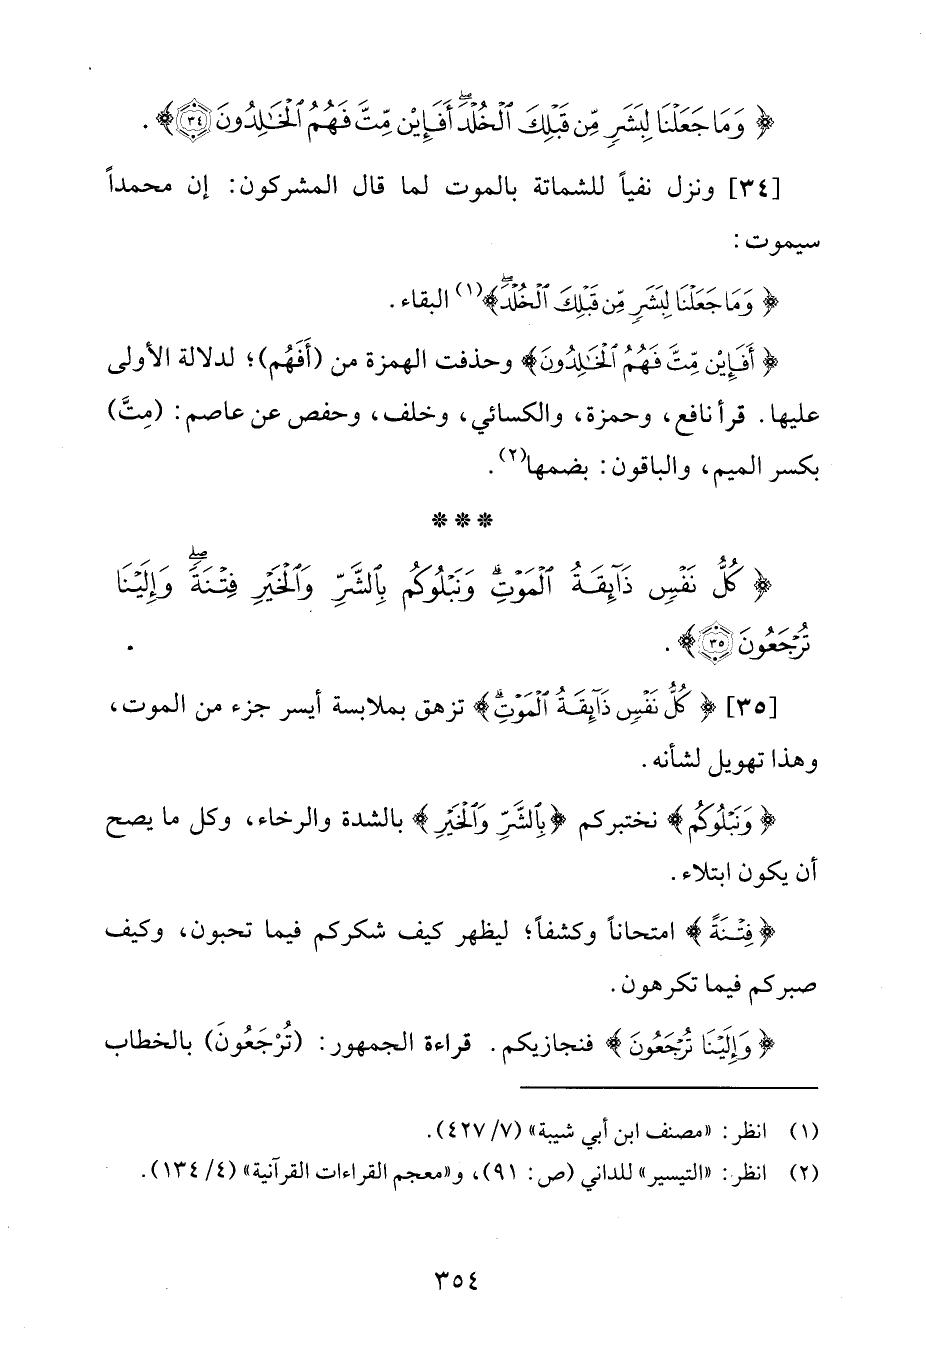 ﴿ وَمَا جَعَلْنَا لِبَشَرٍ مِّن قَبْلِكَ ٱلْخُلْدَۖ أَفَإِيْن مِّتَّ فَهُمُ ٱلْخَٰلِدُونَ ٣٤﴾ .
[٣٤] ونزل نفياً للشماتة بالموت لما قال المشركون: إن محمداً
سيموت:
﴿ وَمَا جَعَلْنَا لِبَشَرٍ مِّن قَبْلِكَ ٱلْخُلْدَۖ﴾(١) البقاء .
﴿ أَفَإِيْن مِّتَّ فَهُمُ ٱلْخَٰلِدُونَ﴾ وحذفت الهمزة من (أَفَهُم)؛ لدلالة الأولى
عليها. قرأ نافع، وحمزة، والكسائي، وخلف، وحفص عن عاصم: (مِتَّ)
بكسر الميم، والباقون: بضمها(٢).
* * *
﴿ كُلُّ نَفْسٍ ذَآئِقَةُ ٱلْمَوْتِۗ وَنَبْلُوكُم بِٱلشَّرِّ وَٱلْخَيْرِ فِتْنَةًۖ وَإِلَيْنَا
تُرْجَعُونَ ٣٥﴾ .
[٣٥] ﴿ كُلُّ نَفْسٍ ذَآئِقَةُ ٱلْمَوْتِۗ﴾ تزهق بملابسة أيسر جزء من الموت،
وهذا تهويل لشأنه .
﴿ وَنَبْلُوكُم﴾ نختبركم ﴿بِٱلشَّرِّ وَٱلْخَيْرِ﴾ بالشدة والرخاء، وكل ما يصح
أن يكون ابتلاء .
﴿فِتْنَةً﴾ امتحاناً وكشفاً؛ ليظهر كيف شكركم فيما تحبون، وكيف
صبركم فيما تكرهون .
﴿ وَإِلَيْنَا تُرْجَعُونَ﴾ فنجازيكم. قراءة الجمهور: (تُرْجَعُونَ) بالخطاب
(١) انظر: «مصنف ابن أبي شيبة» (٧/ ٤٢٧).
(٢) انظر: «التيسير» للداني (ص: ٩١)، و«معجم القراءات القرآنية» (٤/ ١٣٤).
٣٥٤